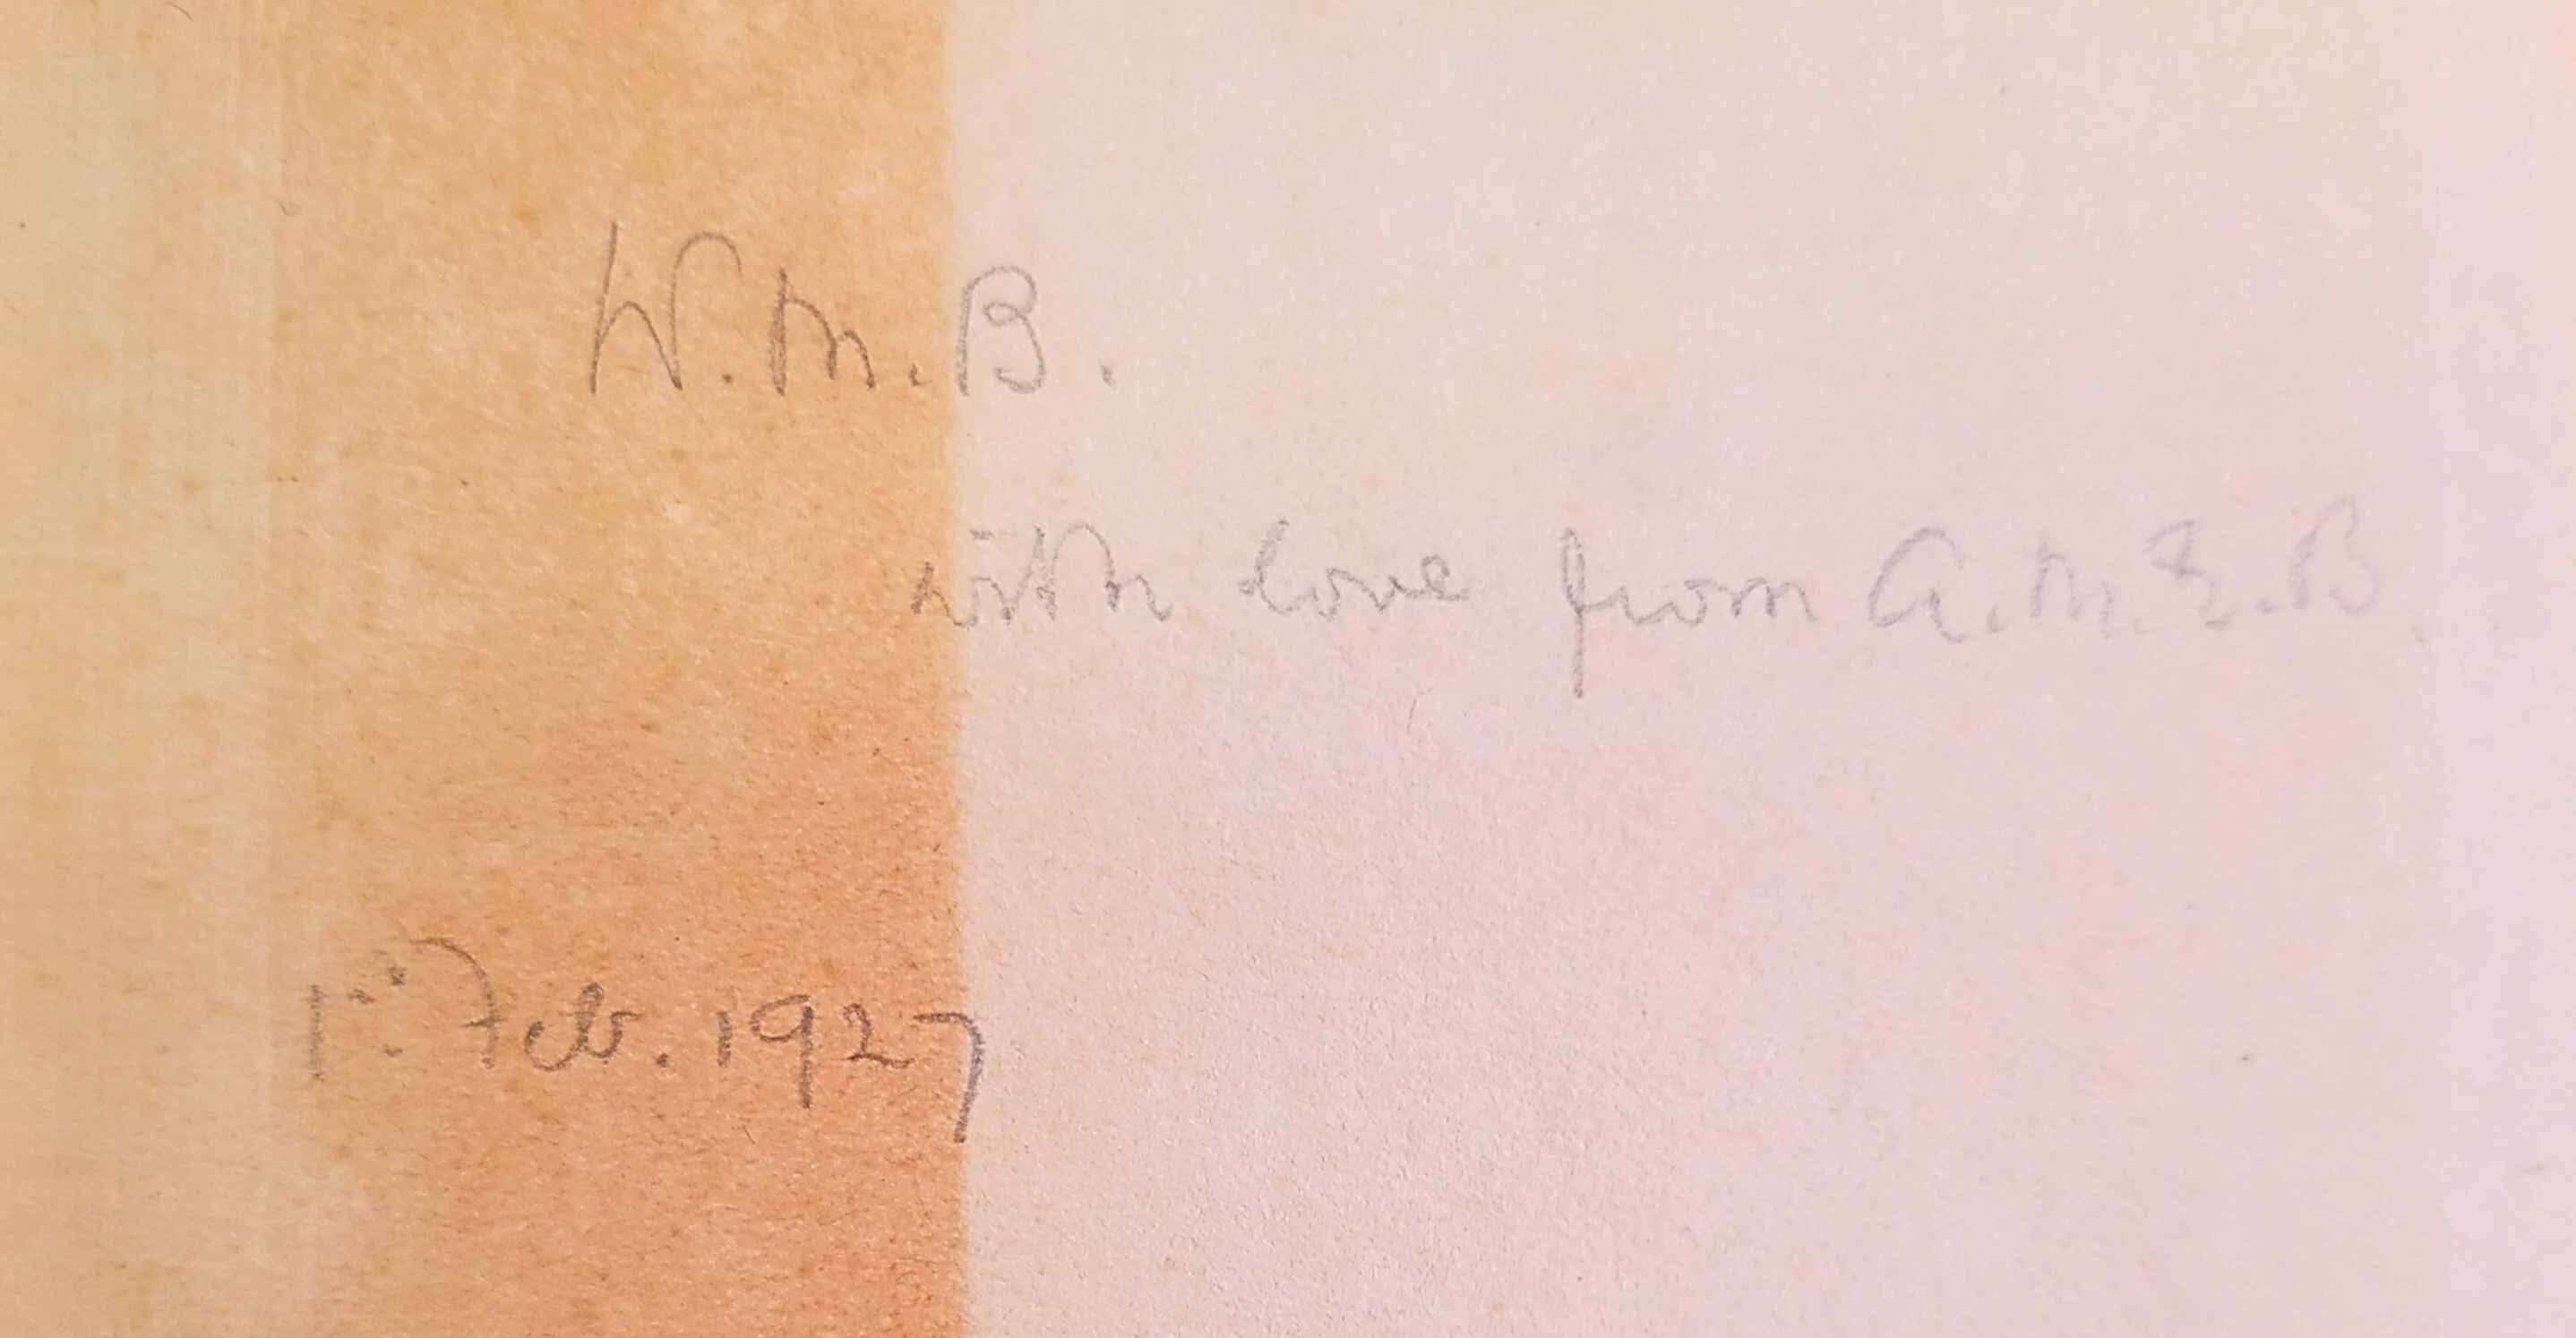 W.M.B.
with love from A.M.E.B.
1st Feb. 1927